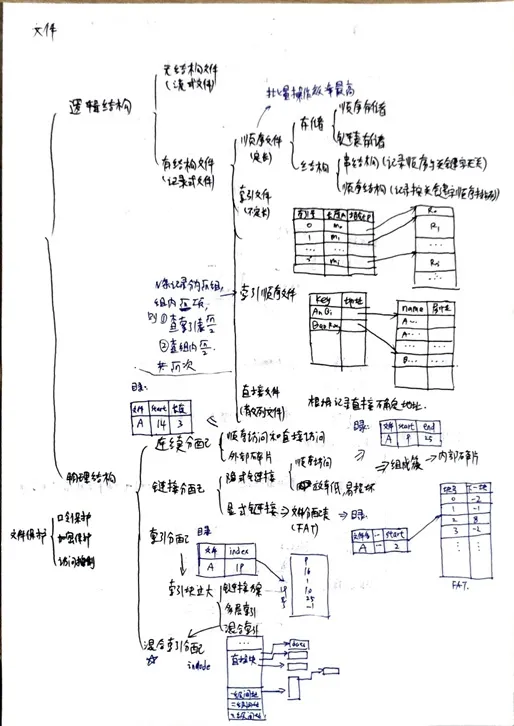 文件
逻辑结构
无结构文件
(流式文件)
有结构文件
(记录式文件)
批量操作效率最高
顺序文件
(定长)
存储
顺序存储
链表存储
结构
串结构(记录顺序与关键字无关)
顺序结构(记录按关键字顺序排列)
索引文件
(不定长)
索引号 长度m 指针p
0 m₀
1 m₁
⋮ ⋮
i mi
⋮ ⋮
R₀
R₁
⋮
Ri
⋮
索引顺序文件
N条记录分为√n组,
组内√n项,
则①查索引表√n/2
②查组内√n/2
共√n次
key 地址
An Qi
Bao Rong
name 其他
A...
A...
...
B...
直接文件
(散列文件)
根据记录直接确定地址.
物理结构
目录:
文件 start 长度
A 14 3
连续分配
顺序访问和直接访问
外部碎片
链接分配
隐式链接
顺序访问
效率低,易损坏
目录:
文件 start end
A 9 25
⇒组成簇→内部碎片
显式链接→文件分配表
(FAT)
⇒目录:
文件名 ... start
A ... 2
块号 下一块
0 -2
1 -1
2 8
3 -2
⋮ ⋮
FAT.
索引分配
目录
文件 index
A 19
19
9
16
1
10
25
-1
索引块过大
链接方案
多层索引
混合索引
混合索引分配
☆
inode
...
直接块
一级间址
二级间址
三级间址
文件保护
口令保护
加密保护
访问控制